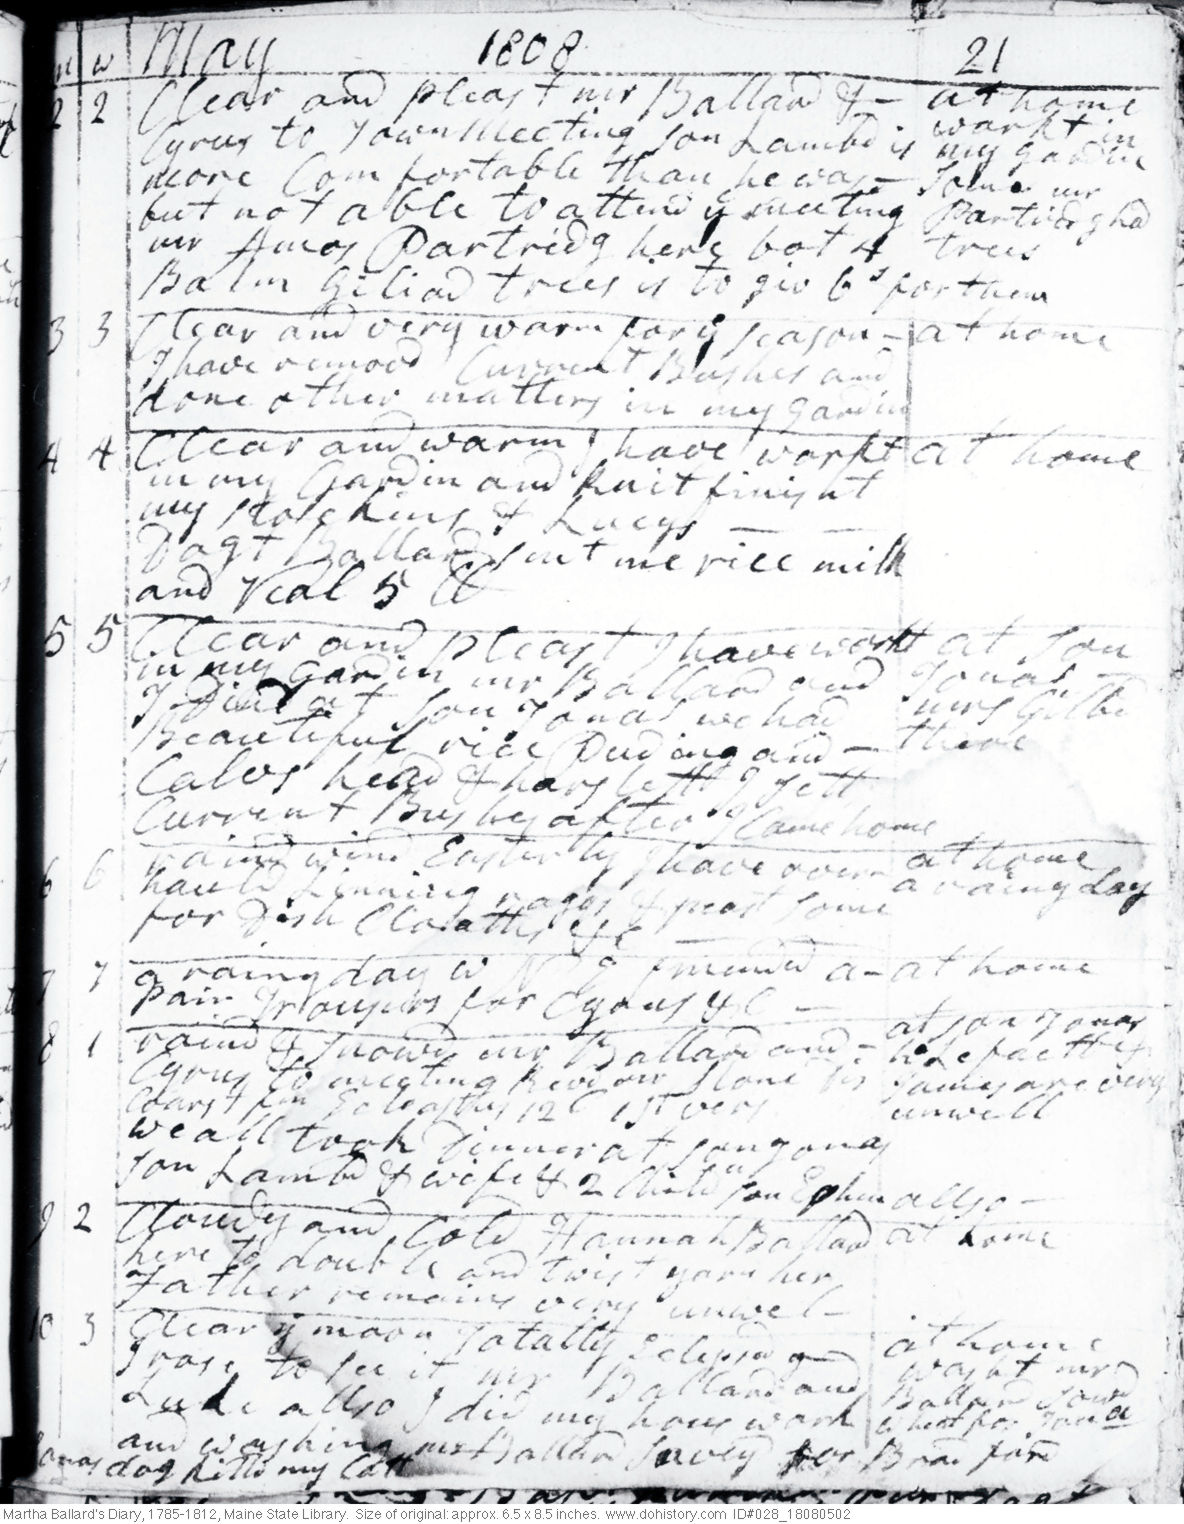 m w May 1808 21
2 2 Clear and pleast mr Ballard & – at home
Cyrus to Town Meeting son Lambd is workt in
more Comfortable than he was – my gardin
but not able to attend ye meeting some mr
mr Amos Partridg here bot 4 Partridg had
Balm Giliad trees is to giv 6s for them trees
3 3 Clear and very warm for ye season – at home
I have remood Current Bushes and
done other matters in my gardin
4 4 Clear and warm I have workt at home
in my Gardin and knit finisht
my stockins & Lucys –
Dagt Ballard sent me rice milk
and Veal 5 lb
5 5 Clear and pleast I have workt at son
in my Gardin mr Ballard and Jonas –
I Dind at son Jonas we had mrs Gilbd
Beautiful rice Puding and – there
Calvs head & harslett I sett
Current Bushes after I came home
6 6 raind wind Easterly I have over at home
hauld Linning rages & some a rainy day
for Dish Cloatths &C –
7 7 a rainy day w N E I mended a – at home
pair Trousers for Cyrus &C –
8 1 raind & snowd mr Ballard and – at son Jonas
Cyrus to meeting Revd mr Stone his
Coars 12 C 1st vers James are very
we all took Dinner at son Jonas unwell
son Lambd & wife & 2 Childn son Ephm allso –
9 2 Cloudy and Cold Hannah Ballard at home
here to double and twist yarn her
Father remains very unwel –
10 3 Clear ye moon Totally Eclipsd at home
I rose to see it mr Ballard and washt mr
Luke allso I did my hous work Ballard
and washing mr Ballard Survey for Bradford
Jonas dog killd my Catt
Martha Ballard's Diary, 1785-1812, Maine State Library. Size of original: approx. 6.5 x 8.5 inches. www.dohistory.com ID#028_18080502